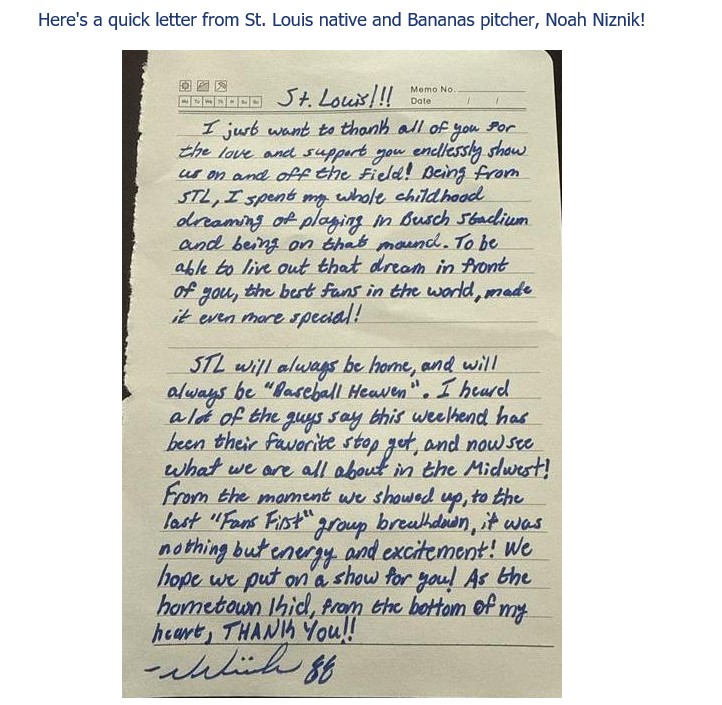 Here's a quick letter from St. Louis native and Bananas pitcher, Noah Niznik!
Memo No.
Mo Tu We Th Fr Sa Su
Date / /
St. Louis!!!
I just want to thank all of you for
the love and support you endlessly show
us on and off the field! Being from
STL, I spent my whole childhood
dreaming of playing in Busch Stadium
and being on that mound. To be
able to live out that dream in front
of you, the best fans in the world, made
it even more special!
STL will always be home, and will
always be "Baseball Heaven". I heard
a lot of the guys say this weekend has
been their favorite stop yet, and now see
what we are all about in the Midwest!
From the moment we showed up, to the
last "Fans First" group breakdown, it was
nothing but energy and excitement! We
hope we put on a show for you! As the
hometown kid, from the bottom of my
heart, THANK YOU!!